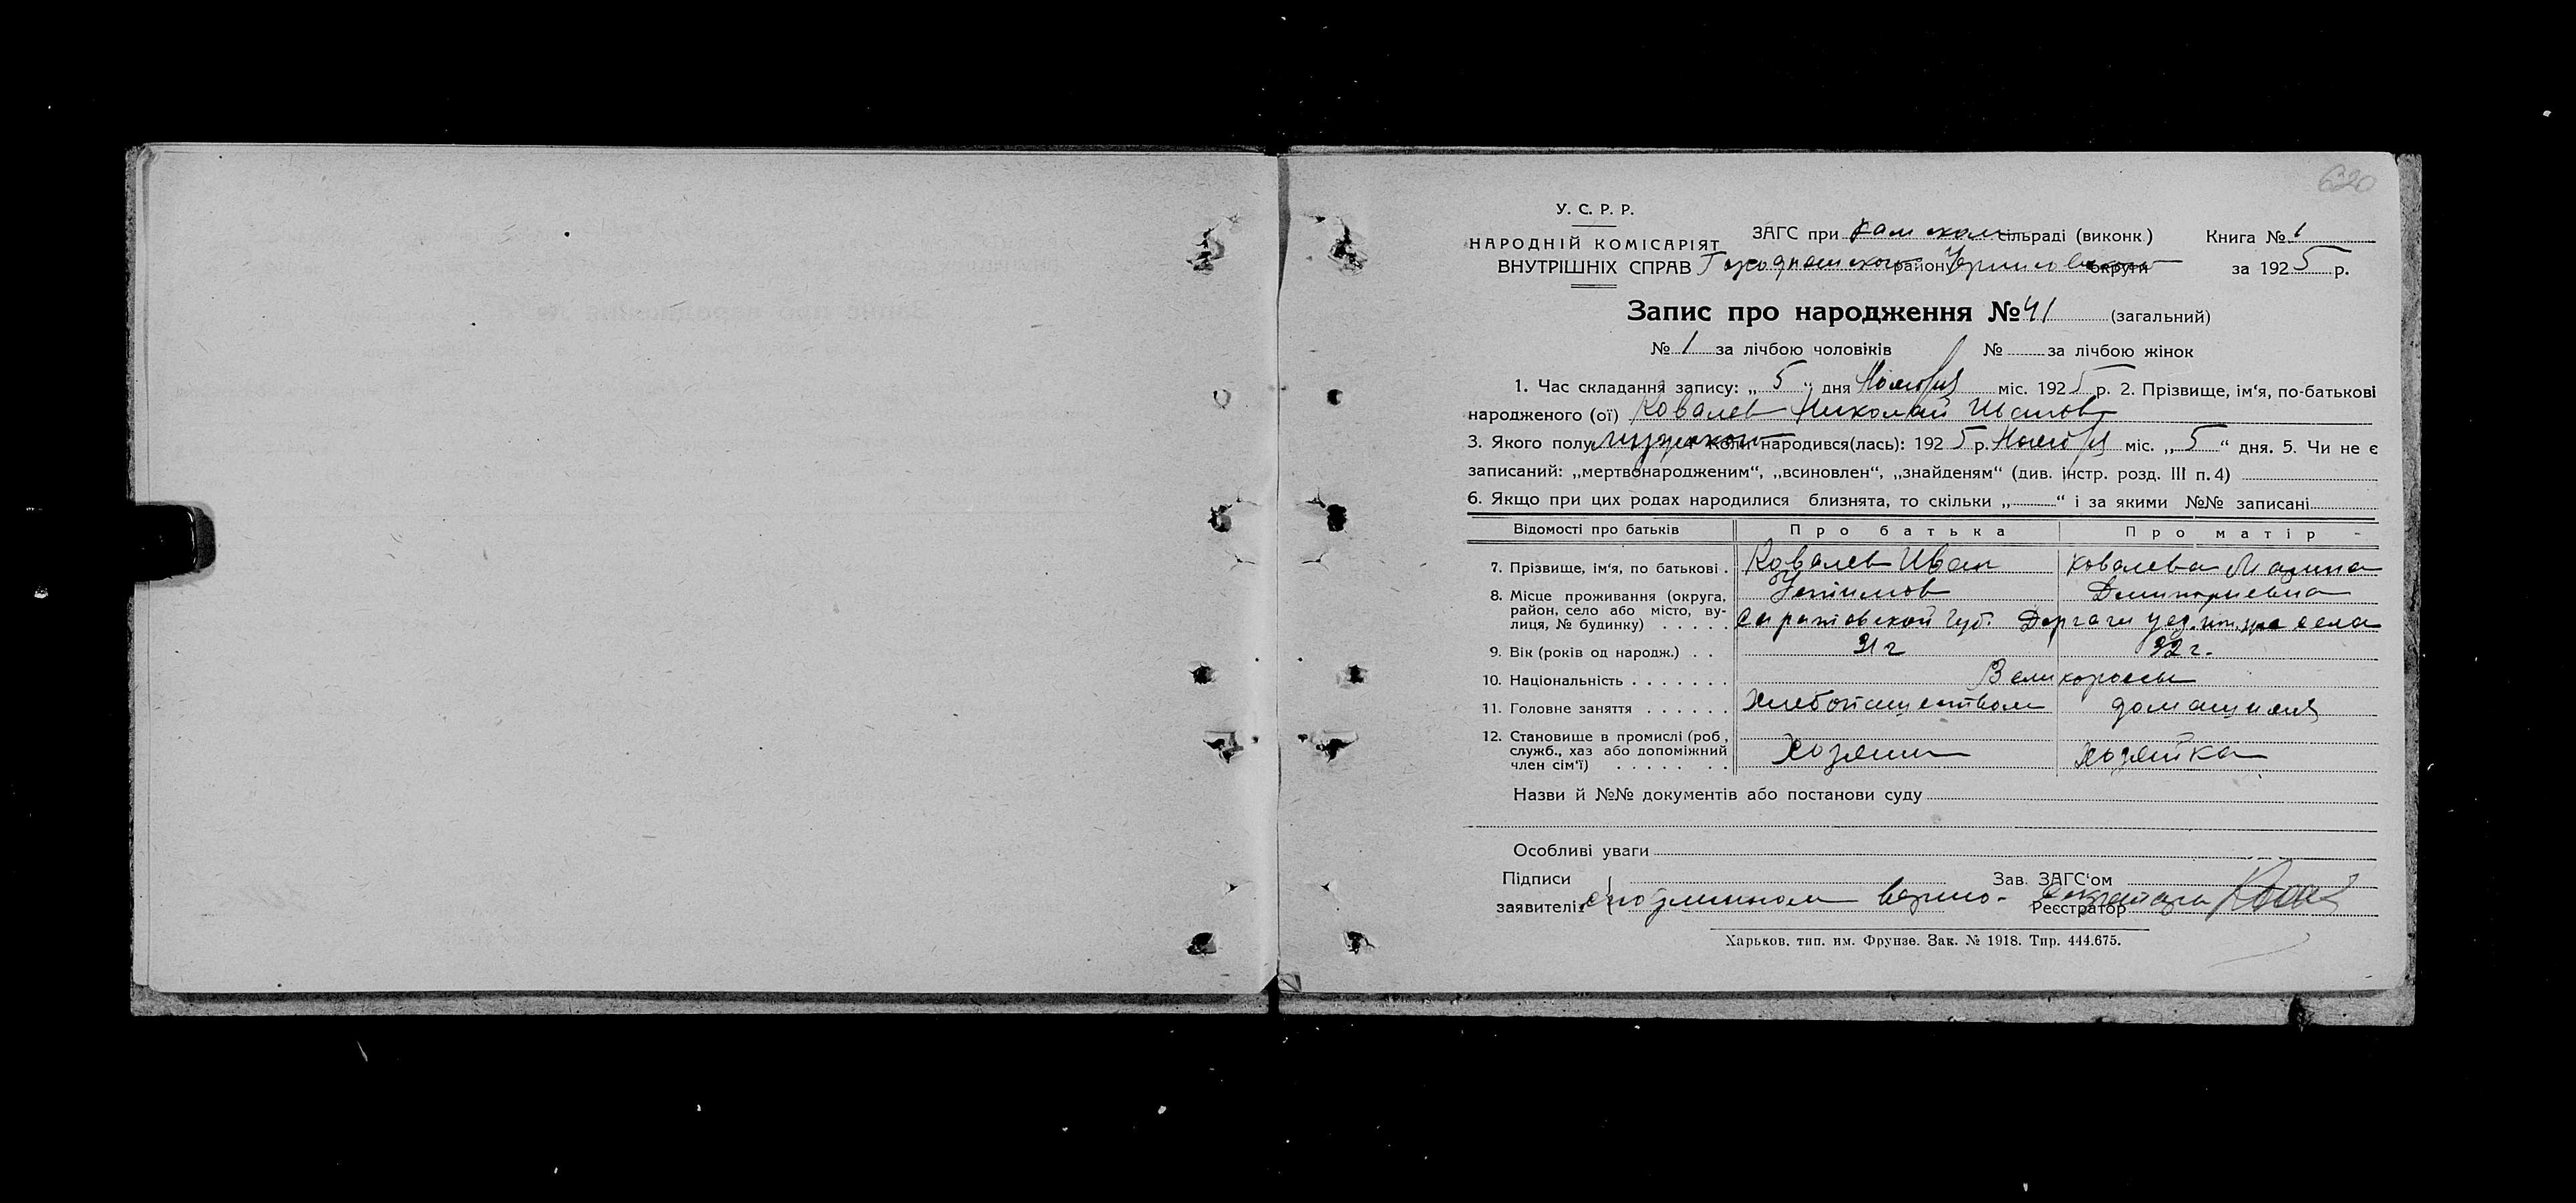 620
У. С. Р. Р.
НАРОДНІЙ КОМІСАРІЯТ
ВНУТРІШНІХ СПРАВ
ЗАГС при Камском сільраді (виконк) Книга № 1
Городнянского району Черниговской округи за 1925 р.
Запис про народження № 41 (загальний)
№ 1 за лічбою чоловіків № за лічбою жінок
1. Час складання запису: „ 5 “ дня Ноября міс. 1925 р. 2. Прізвище, ім‘я, по-батькові
народженого (ої) Ковалев Николай Иванов
3. Якого полу мужского 4 Коли народився(лась): 1925 р. Ноября міс. „ 5 “ дня. 5. Чи не є
записаний: „мертвонародженим“, „всиновлен“, „знайденям“ (див. інстр. розд. III п. 4)
6. Якщо при цих родах народилися близнята, то скільки „ “ і за якими №№ записані
Відомості про батьків Про батька Про матір
7. Прізвище, ім‘я, по батькові . Ковалев Иван Ковалева
8. Місце проживання (округа, Дмитриевна
район, село або місто, ву-
лиця, № будинку) . . . . . Саратовской Губ. села
9. Вік (років од народж.) . . 31 г 32 г.
10. Національність . . . . . . . Великороссы
11. Головне заняття . . . . . . Хлебопашеством домашняя
12. Становище в промислі (роб,
служб., хаз або допоміжний Хозяин Хозяйка
член сім‘ї) . . . . . . .
Назви й №№ документів або постанови суду
Особливі уваги
Підписи Зав. ЗАГС‘ом
заявителів с подлинном верно- Секретарь
Реєстратор
Харьков. тип. им. Фрунзе. Зак. № 1918. Тир. 444.675.